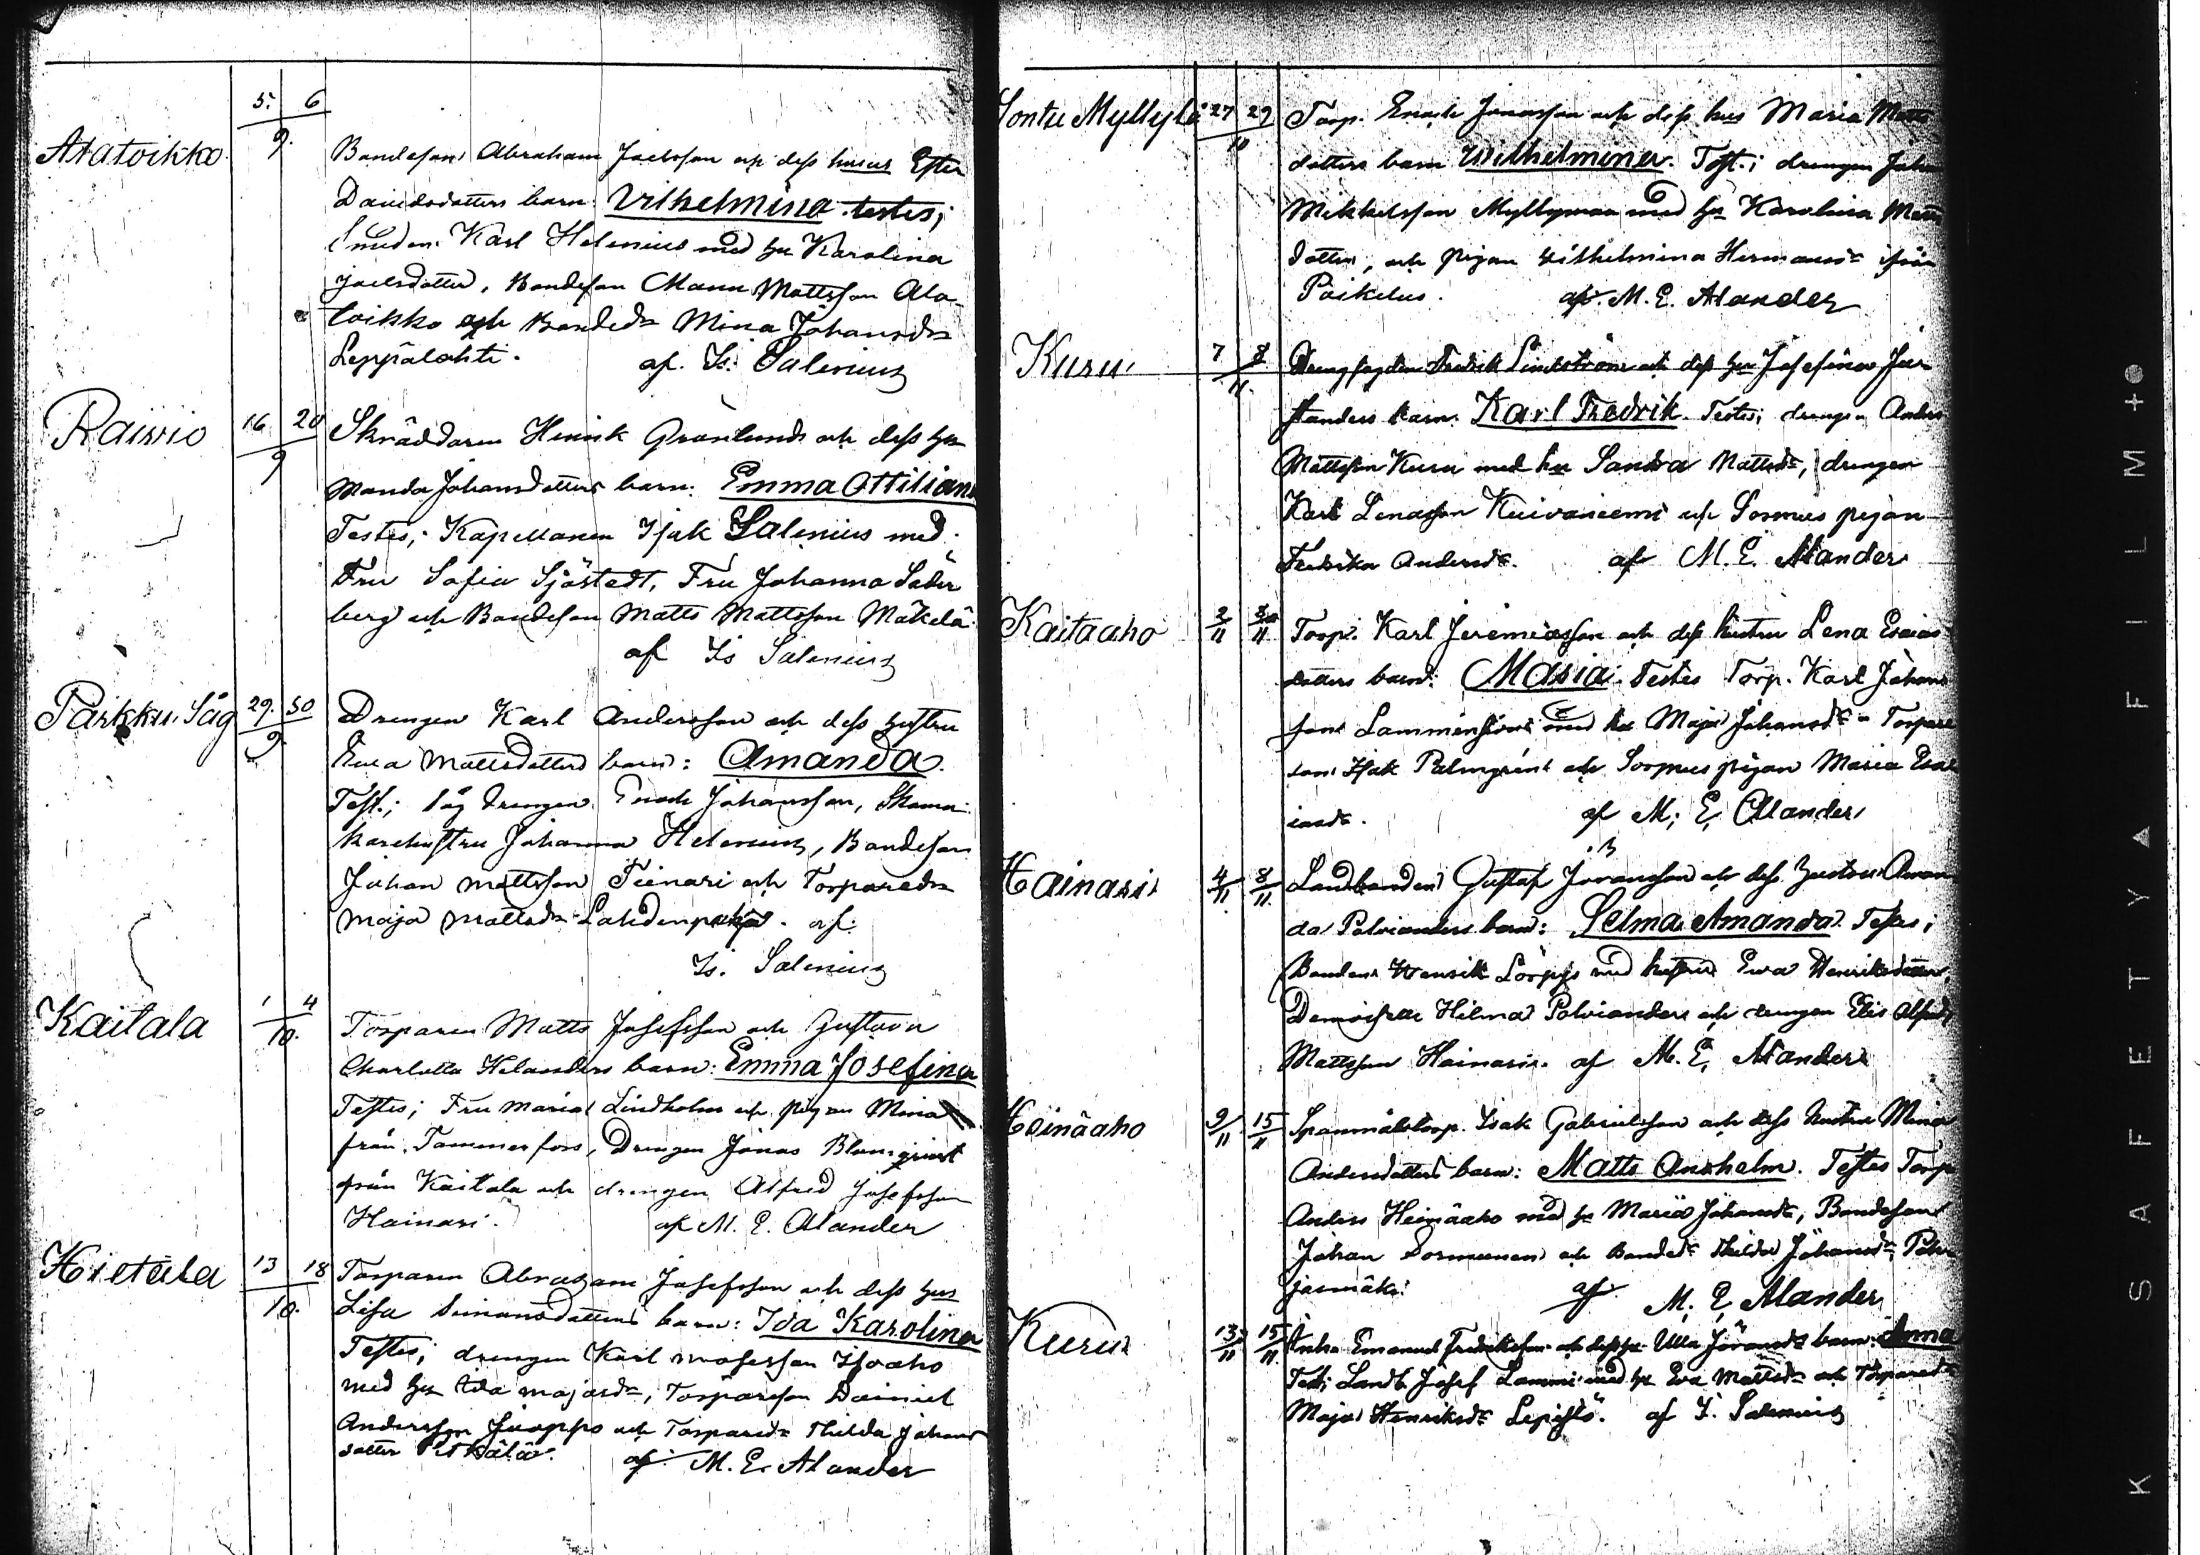 5. 6
9.
Alatoikko
Bondeson Abraham Joelsson och dess hustrus Ester
Davidsdotters barn: Vilhelmina. testes;
Smeden Karl Helenius med hu Karolina
Joelsdotter, Bondeson Manu Mattsson Ala-
toikko och Bonded. Mina Johansd.
Leppälahti. af. Is. Salenius
Raivio 16 20
9
Skräddaren Henrik Grönlunds och dess hu
Wanda Johansdotters barn: Emma Ottiliana
Testes; Kapellanen Isak Salenius med
Fru Sofia Sjöstedt, Fru Johanna Söder
berg och Bondeson Matts Mattsson Mäkelä
af Is Salenius
Parkku Såg 29. 30
9
Drengen Karl Andersson och dess hustru
Ewa Mattsdotters barn: Amanda.
Test.; Såg drengen Enoch Johansson, Skoma-
karehustru Johanna Helenius, Bondeson
Johan Mattsson Tienari och Torpared.
Maja Mattsd. Lahdenpohja. af.
Is. Salenius
Kaitala 1 4
10.
Torparen Matts Josefsson och Gustava
Charlotta Helanders barn: Emma Josefina
Testes; Fru Maria Lindholm och pigan Mina
från Tammerfors, Drengen Jonas Blomqvist
från Kaitala och drengen Alfred Josefsson
Hainari. af M. E. Alander
Hietala 13 18
10.
Torparen Abraham Josefsson och dess hus
Lisa Simonsdotters barn: Ida Karolina
Testes; drengen Karl Mosesson Isoaho
med hu Eva Majasd., Torpareson Daniel
Andersson Juoppo och Torpared. Thilda Johans
dotter Pitkälä. af M. E. Alander
Sontu Myllylä 27 29
10
Torp. Enoch Jonasson och dess hus Maria Matts
dotters barn Wilhelmina. Test.; drengen Johan
Mikkelsson Myllymaa med hu Karolina Matts
dotter, och pigan Wilhelmina Hermansd. ifrån
Poikelus. af. M. E. Alander
Kuru 7 8
11.
Drengfogden Fredrik Lindström och dess hu Josefina For
standers barn: Karl Fredrik. Testes; drengen Anders
Mattsson Kuru med hu Sandra Mattsd., drengen
Karl Enochsson Kuivaniemi och Sormus pigan
Fredrika Andersd. af M. E. Alander
Kaitaaho 2/11 3/11
Torp. Karl Jeremiasson och dess hustru Lena Esaias
dotters barn: Maria. Testes Torp. Karl Johans
son Lamminsivu med hu Maja Johansd. Torpare
son Isak Palmgren och Sormus pigan Maria Esa
iasd. af M. E. Alander
Hainari 4/11 8/11
Landbonden Gustaf Jöransson och dess hustru Aman
da Polvianders barn: Selma Amanda. Testes;
Bonden Henrik Löippö med hustru Ewa Henriksdotter,
Demoiselle Hilma Polviander och drengen Elis Alfred
Mattsson Hainari. af M. E. Alander
Heinäaho 9/11 15/11
Spannmålstorp. Isak Gabrielsson och dess hustru Mina
Andersdotters barn: Matts Anshelm. Testes Torp
Anders Heinäaho med hu Maria Johansd., Bondeson
Johan Sormunen och Bonded. Thilda Johansd. Poh
jasmäki. af M. E. Alander
Kuru 13/11 15/11
Emanuel Fredriksson och dess hu Ulla Jöransd. barn: Anna
Test; Landb. Josef Lammi med hu Eva Mattsd. och Torpared.
Maja Henriksd. Lepistö. af I. Salenius
K SAFETY FILM